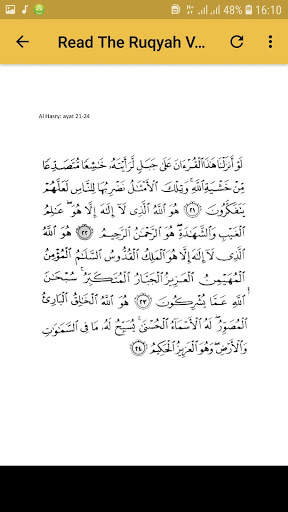 48% 16:10
Read The Ruqyah V...
Al Hasry: ayat 21-24
لَوْ أَنزَلْنَا هَٰذَا ٱلْقُرْءَانَ عَلَىٰ جَبَلٍ لَّرَأَيْتَهُۥ خَٰشِعًا مُّتَصَدِّعًا
مِّنْ خَشْيَةِ ٱللَّهِ ۚ وَتِلْكَ ٱلْأَمْثَٰلُ نَضْرِبُهَا لِلنَّاسِ لَعَلَّهُمْ
يَتَفَكَّرُونَ ٢١ هُوَ ٱللَّهُ ٱلَّذِى لَآ إِلَٰهَ إِلَّا هُوَ ۖ عَٰلِمُ
ٱلْغَيْبِ وَٱلشَّهَٰدَةِ ۖ هُوَ ٱلرَّحْمَٰنُ ٱلرَّحِيمُ ٢٢ هُوَ ٱللَّهُ
ٱلَّذِى لَآ إِلَٰهَ إِلَّا هُوَ ٱلْمَلِكُ ٱلْقُدُّوسُ ٱلسَّلَٰمُ ٱلْمُؤْمِنُ
ٱلْمُهَيْمِنُ ٱلْعَزِيزُ ٱلْجَبَّارُ ٱلْمُتَكَبِّرُ ۚ سُبْحَٰنَ
ٱللَّهِ عَمَّا يُشْرِكُونَ ٢٣ هُوَ ٱللَّهُ ٱلْخَٰلِقُ ٱلْبَارِئُ
ٱلْمُصَوِّرُ ۖ لَهُ ٱلْأَسْمَآءُ ٱلْحُسْنَىٰ ۚ يُسَبِّحُ لَهُۥ مَا فِى ٱلسَّمَٰوَٰتِ
وَٱلْأَرْضِ ۖ وَهُوَ ٱلْعَزِيزُ ٱلْحَكِيمُ ٢٤